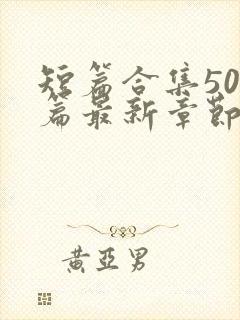 短篇合集50
篇最新章節
黄亞男